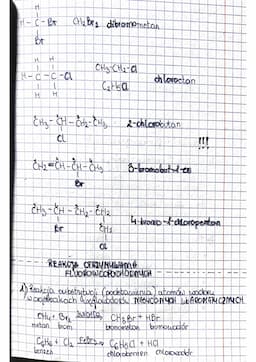 H
H-C-Br   CH₂Br₂ dibromometan
Br
H H
H-C-C-Cl   CH₃-CH₂-Cl   chloroetan
H H   C₂H₅Cl
CH₃-CH-CH₂-CH₃   2-chlorobutan
Cl   !!!
CH₂=CH-CH-CH₃   3-bromobut-1-en
Br
CH₃-CH-CH₂-CH₂
Br   CH₂
Cl
REAKCJE OTRZYMYWANIA
FLUOROWCOPOCHODNYCH
1) Reakcja substytucji (podstawienia) atomów wodoru
w cząsteczkach węglowodorów NASYCONYCH lub AROMATYCZNYCH.
CH₄ + Br₂ światło CH₃Br + HBr
metan brom bromometan bromowodór
C₆H₆ + Cl₂ FeBr₃ C₆H₅Cl + HCl
benzen chlorobenzen chlorowodór